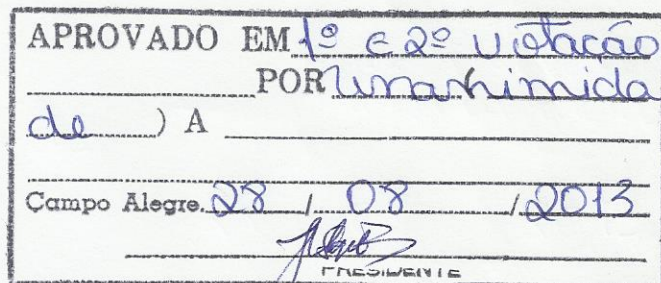 APROVADO EM 1º e 2º votação
POR Unanhimida
de ) A
Campo Alegre. 28 / 08 / 2013
PRESIDENTE